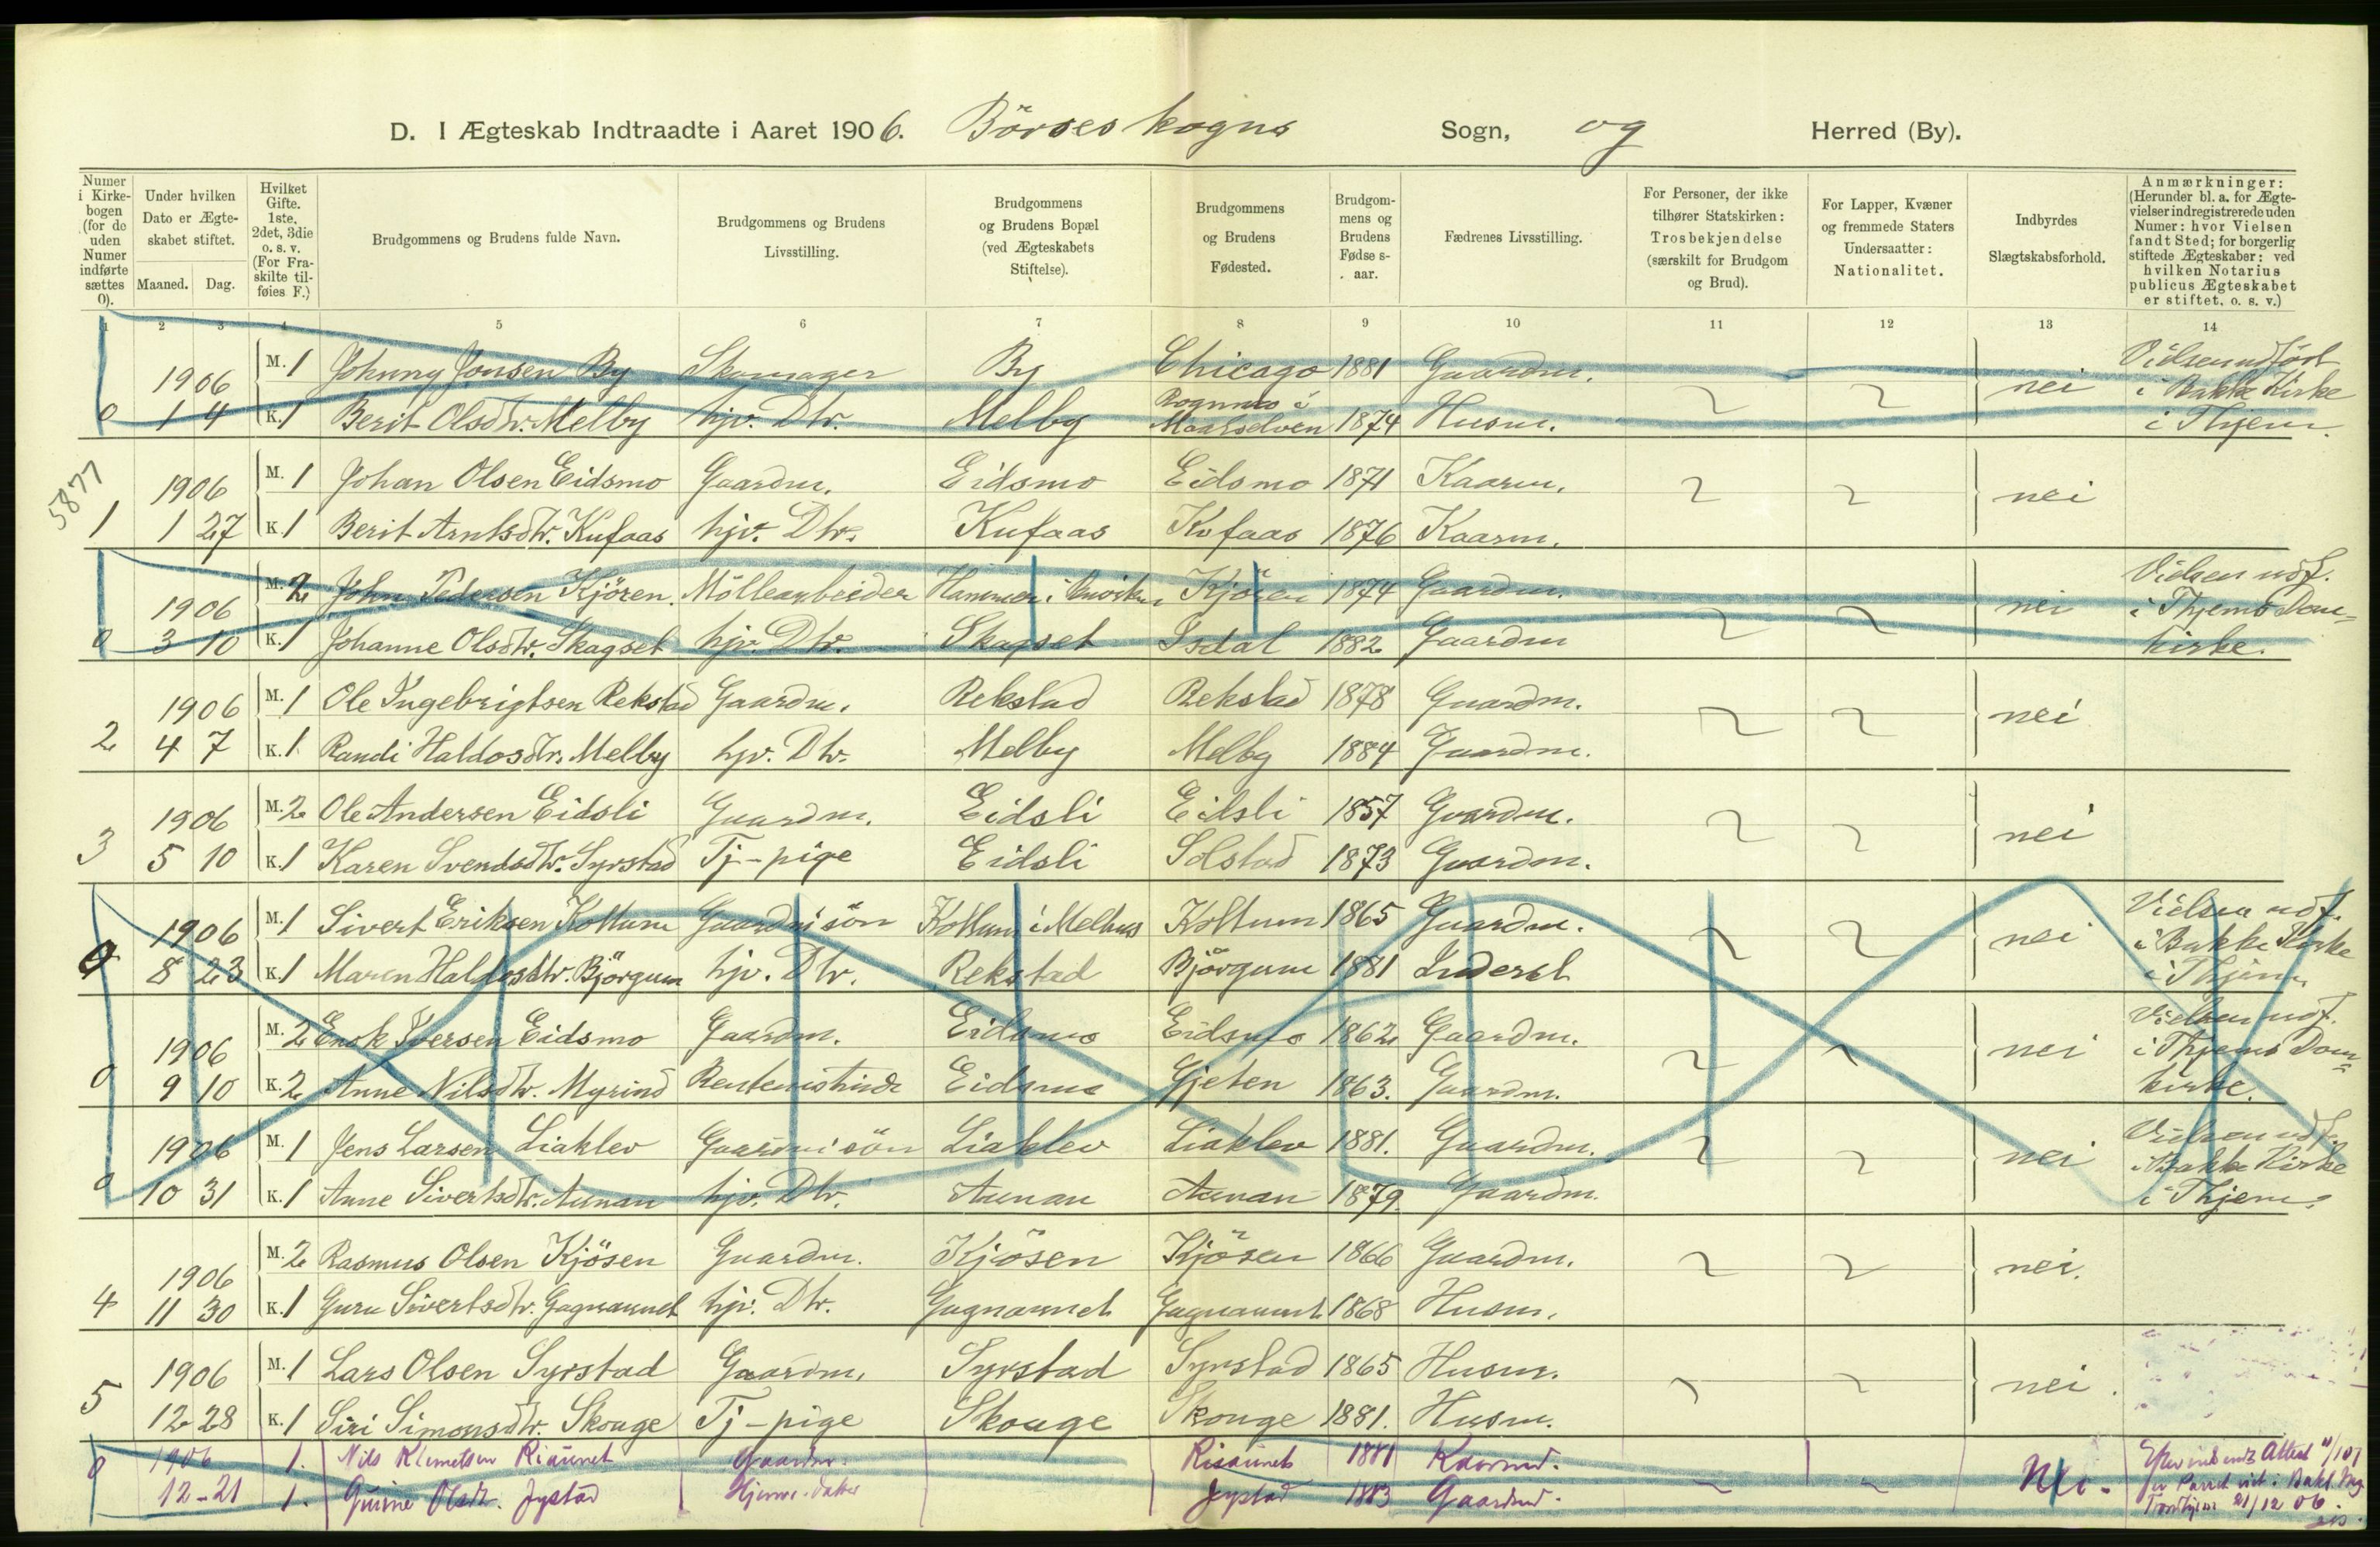 D. I Ægteskab Indtraadte i Aaret 1906. Börseskogns Sogn, og Herred (By).
Numer i Kirkebogen (for de uden Numer indførte sættes 0).
Under hvilken Dato er Ægteskabet stiftet.
Maaned. Dag.
Hvilket Gifte. 1ste, 2det, 3die o. s. v. (For Fraskilte tilføies F.)
Brudgommens og Brudens fulde Navn.
Brudgommens og Brudens Livsstilling.
Brudgommens og Brudens Bopæl (ved Ægteskabets Stiftelse).
Brudgommens og Brudens Fødested.
Brudgommens og Brudens Fødse s-aar.
Fædrenes Livsstilling.
For Personer, der ikke tilhører Statskirken: Trosbekjendelse (særskilt for Brudgom og Brud).
For Lapper, Kvæner og fremmede Staters Undersaatter: Nationalitet.
Indbyrdes Slægtskabsforhold.
Anmærkninger: (Herunder bl. a. for Ægtevielser indregistrerede uden Numer: hvor Vielsen fandt Sted; for borgerlig stiftede Ægteskaber: ved hvilken Notarius publicus Ægteskabet er stiftet, o. s. v.)
1 2 3 4 5 6 7 8 9 10 11 12 13 14
1906 M. 1 Johnny Jonsen By Skomager By Chicago 1881 Gaardm. nei Vielsen udført i Bakke Kirke i Thjem.
0 1 4 K. 1 Berit Olsdtr. Melby hjv. Dtr. Melby Maalselven 1874 Husm.
5877
1906 M. 1 Johan Olsen Eidsmo Gaardm. Eidsmo Eidsmo 1871 Kaarm. nei
1 1 27 K. 1 Berit Arntsdtr. Kufaas hjv. Dtr. Kufaas Kufaas 1876 Kaarm.
1906 M. 2 John Pedersen Kjören. Möllearbeider Hammer i Kjören 1874 Gaardm. nei Vielsen udf. i Thjems Domkirke.
0 3 10 K. 1 Johanne Olsdtr. Skagset hjv. Dtr. Skagset Isdal 1882 Gaardm
1906 M. 1 Ole Ingebrigtsen Rekstad Gaardm. Rekstad Rekstad 1878 Gaardm. nei
2 4 7 K. 1 Randi Haldosdtr. Melby hjv. Dtr. Melby Melby 1884 Gaardm.
1906 M. 2 Ole Andersen Eidsli Gaardm. Eidsli Eidsli 1857 Gaardm. nei
3 5 10 K. 1 Karen Svendsdtr. Syrstad Tj-pige Eidsli Solstad 1873 Gaardm.
1906 M. 1 Sivert Eriksen Kottum Gaardmisön Kottum i Melhus Kottum 1865 Gaardm. nei Vielsen udf. i Bakke Kirke i Thjem
0 8 23 K. 1 Maren Haldosdtr. Björgum hjv. Dtr. Rekstad Björgum 1881 Inderst
1906 M. 2 Enok Iversen Eidsmo Gaardm. Eidsmo Eidsmo 1862 Gaardm. nei Vielsen udf. i Thjems Domkirke.
0 9 10 K. 2 Anne Nilsdtr. Myrind Eidsmo Gjeten 1863. Gaardm.
1906 M. 1 Jens Larsen Liaklev Gaardmisön Liaklev Liaklev 1881. Gaardm. nei Vielsen udf. i Bakke Kirke i Thjem.
0 10 31 K. 1 Anne Sivertsdtr. Aunan hjv. Dtr. Aunan Aunan 1879. Gaardm.
1906 M. 2 Rasmus Olsen Kjösen Gaardm. Kjösen Kjösen 1866 Gaardm. nei.
4 11 30 K. 1 Guru Sivertsdtr. Gagnaunet hjv. Dtr. Gagnaunet Gagnaunet 1868 Husm.
1906 M. 1 Lars Olsen Syrstad Gaardm. Syrstad Syrstad 1865 Husm. nei.
5 12 28 K. 1 Siri Simonsdtr. Skouge Tj-pige Skouge Skouge 1881. Husm.
0 1906 1. Nils Klemetsen Risaunet Gaardm. Risaunet 1881 Nei.
12-21 1. Olsdtr. Jystad Hjemv. datter Jystad 1883 Gaardmd. Trondhjem 21/12 06.